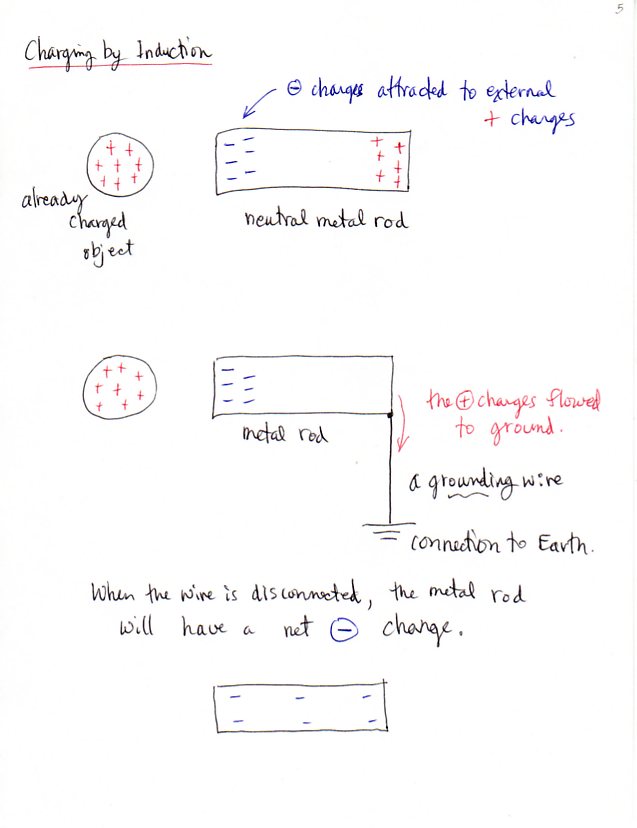 5
Charging by Induction
⊖ charges attracted to external
+ charges
already
charged
object
neutral metal rod
the ⊕ charges flowed
to ground.
metal rod
a grounding wire
connection to Earth.
When the wire is disconnected, the metal rod
will have a net ⊖ change.